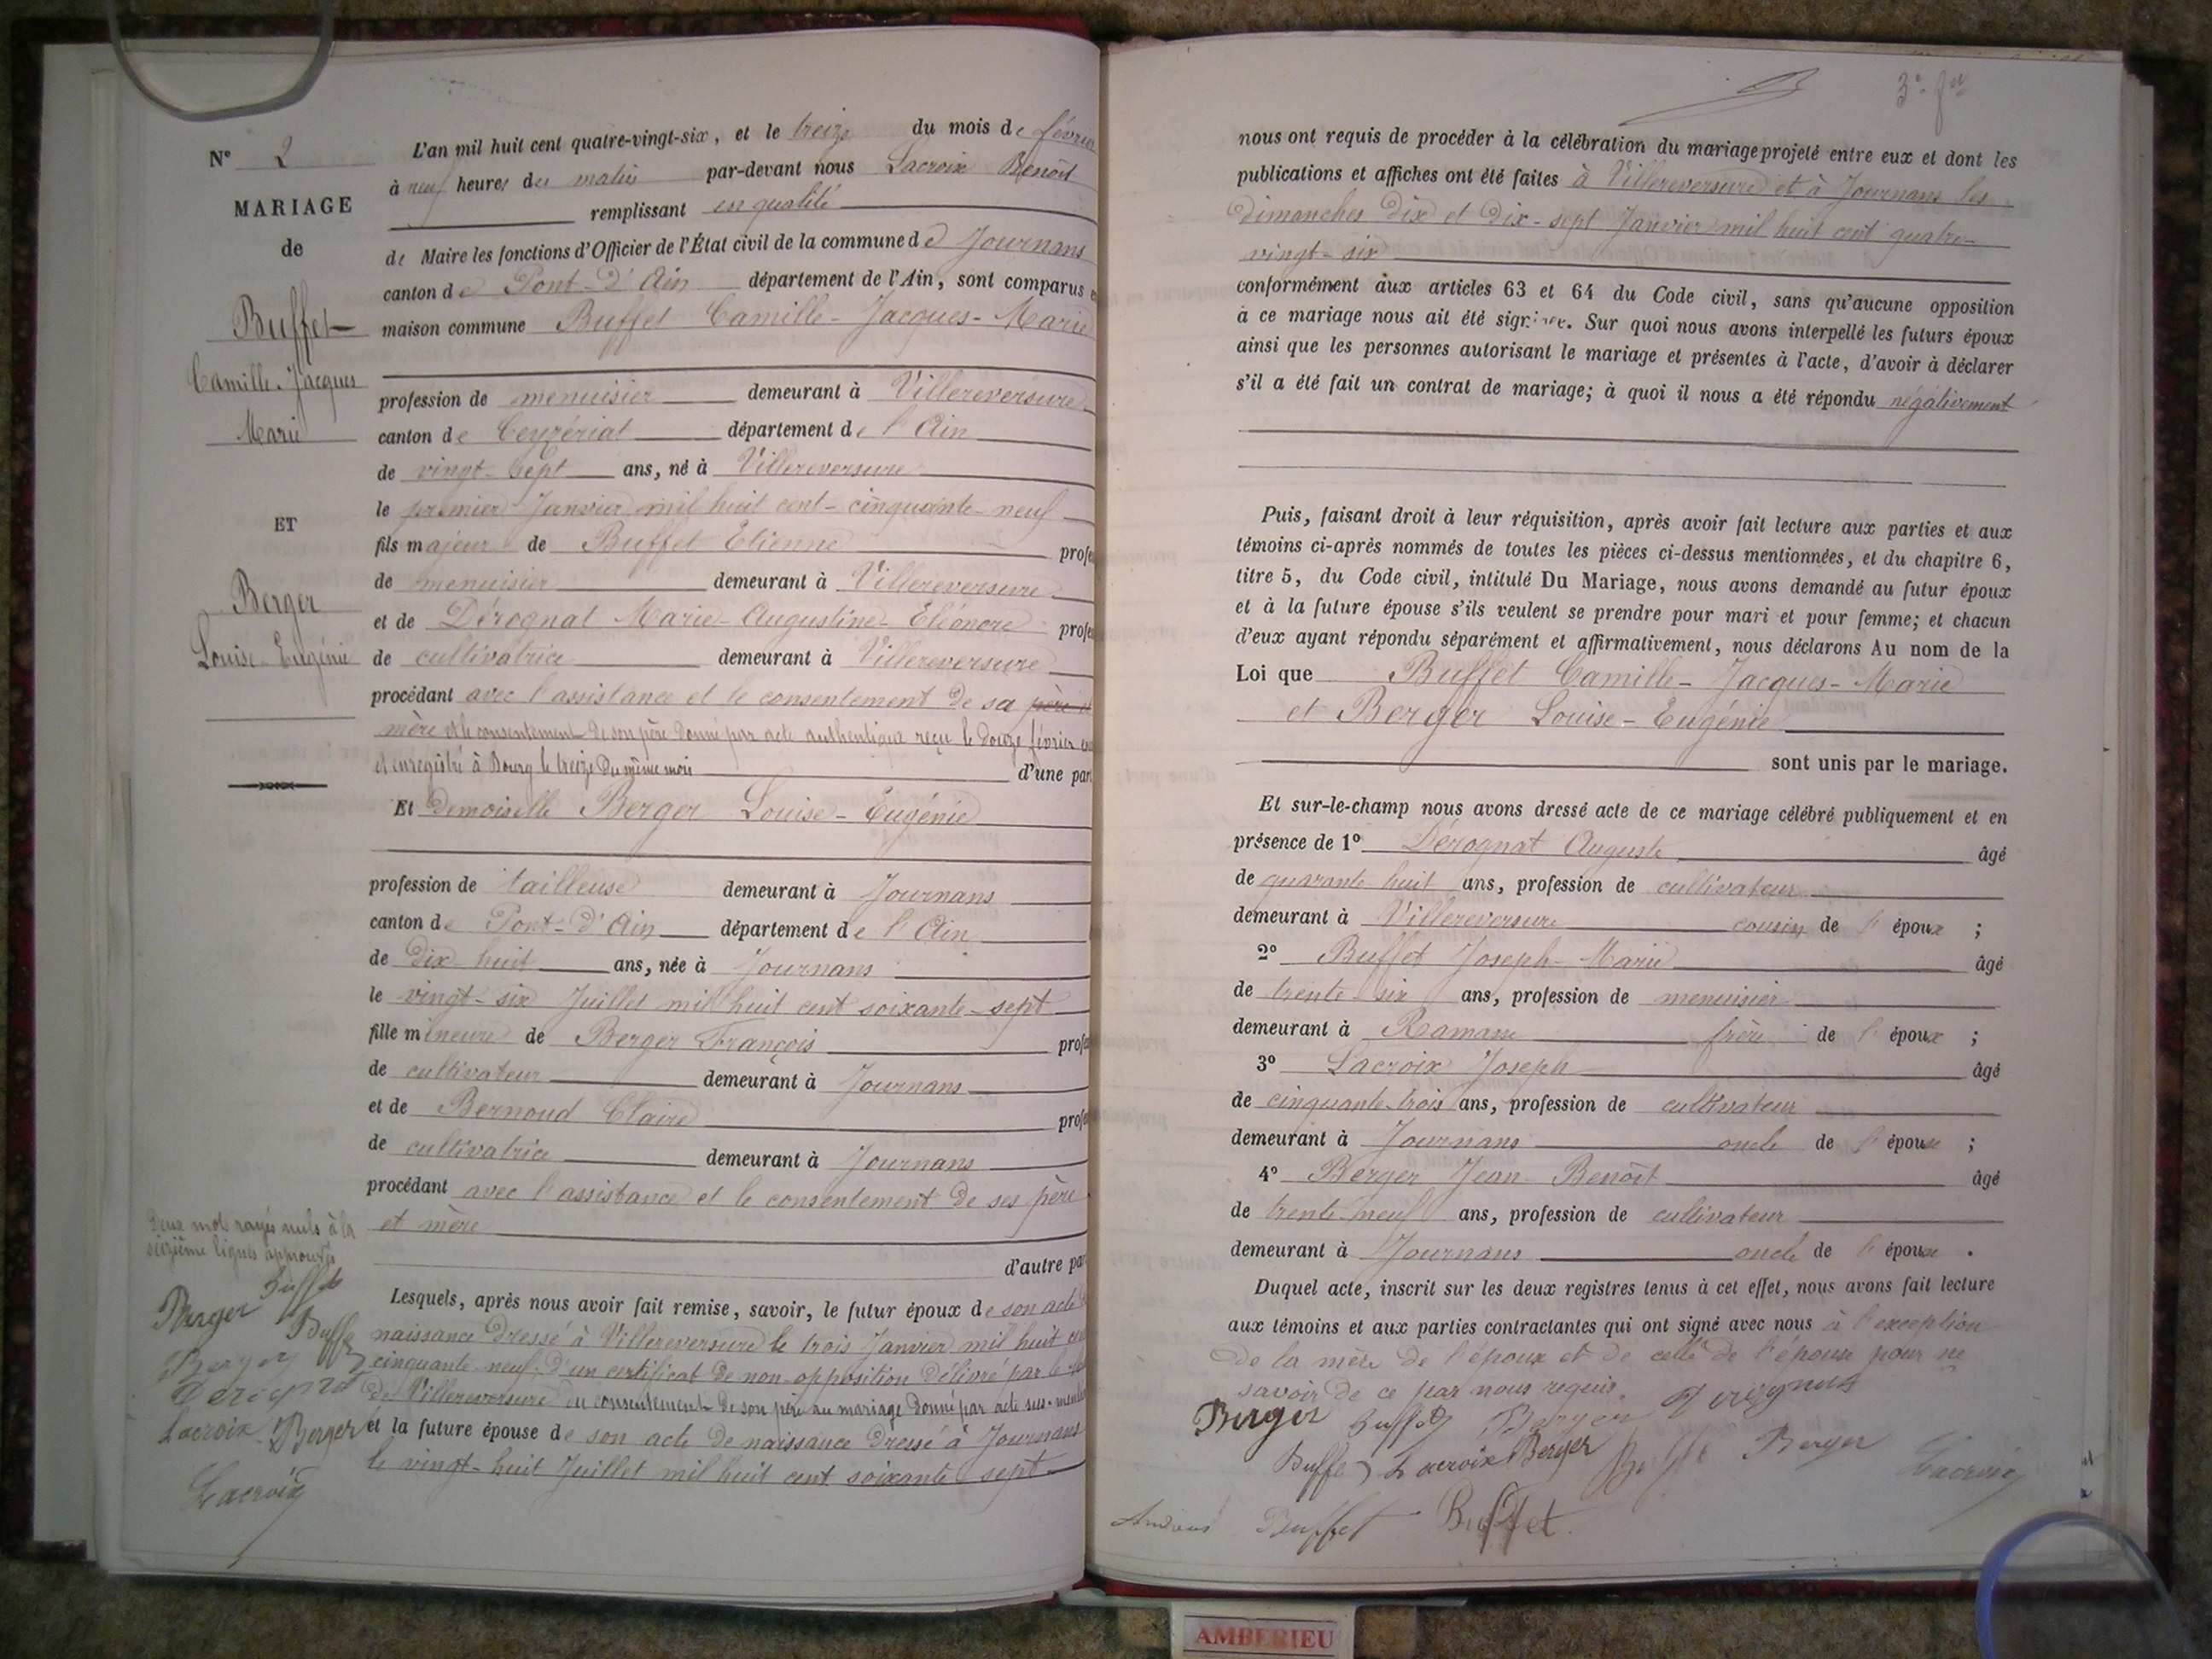 N° 2
MARIAGE
de
Buffet
Camille-Jacques
Marie
ET
Berger
Louise-Eugénie
L'an mil huit cent quatre-vingt-six, et le treize du mois de février
à neuf heures du matin par-devant nous Lacroix Benoît
remplissant en qualité
de Maire les fonctions d'Officier de l'État civil de la commune de Journans
canton de Pont-d'Ain département de l'Ain, sont comparus
maison commune Buffet Camille-Jacques-Marie
profession de menuisier demeurant à Villereversure
canton de Ceyzériat département de l'Ain
de vingt-sept ans, né à Villereversure
le premier Janvier mil huit cent-cinquante-neuf
fils majeur de Buffet Etienne profes
de menuisier demeurant à Villereversure
et de Dérognat Marie-Augustine-Eléonore profes
de cultivatrice demeurant à Villereversure
procédant avec l'assistance et le consentement de sa père et
mère et le consentement de son père donné par acte authentique reçu le douze février
et enregistré à Bourg le treize du même mois d'une part
Et demoiselle Berger Louise-Eugénie
profession de tailleuse demeurant à Journans
canton de Pont-d'Ain département de l'Ain
de dix huit ans, née à Journans
le vingt-six Juillet mil huit cent soixante-sept
fille mineure de Berger François profes
de cultivateur demeurant à Journans
et de Bernoud Claire profes
de cultivatrice demeurant à Journans
procédant avec l'assistance et le consentement de ses père
et mère
d'autre pa
Lesquels, après nous avoir fait remise, savoir, le futur époux de son acte
naissance dressé à Villereversure le trois Janvier mil huit
cinquante-neuf, d'un certificat de non-opposition délivré par le
de Villereversure du consentement de son père au mariage donné par acte sus-men
et la future épouse de son acte de naissance dressé à Journans
le vingt-huit Juillet mil huit cent soixante-sept
Deux mots rayés nuls à la
seizième lignes approuvés
Buffet
Berger
Buffet
Berger
Lacroix Berger
Lacroix
nous ont requis de procéder à la célébration du mariage projeté entre eux et dont les
publications et affiches ont été faites à Villereversure et à Journans les
dimanches dix et dix-sept Janvier mil huit cent quatre-
vingt-six
conformément aux articles 63 et 64 du Code civil, sans qu'aucune opposition
à ce mariage nous ait été signifiée. Sur quoi nous avons interpellé les futurs époux
ainsi que les personnes autorisant le mariage et présentes à l'acte, d'avoir à déclarer
s'il a été fait un contrat de mariage; à quoi il nous a été répondu négativement
Puis, faisant droit à leur réquisition, après avoir fait lecture aux parties et aux
témoins ci-après nommés de toutes les pièces ci-dessus mentionnées, et du chapitre 6,
titre 5, du Code civil, intitulé Du Mariage, nous avons demandé au futur époux
et à la future épouse s'ils veulent se prendre pour mari et pour femme; et chacun
d'eux ayant répondu séparément et affirmativement, nous déclarons Au nom de la
Loi que Buffet Camille-Jacques-Marie
et Berger Louise-Eugénie
sont unis par le mariage.
Et sur-le-champ nous avons dressé acte de ce mariage célébré publiquement et en
présence de 1° Dérognat Auguste âgé
de quarante huit ans, profession de cultivateur
demeurant à Villereversure cousin de l'époux ;
2° Buffet Joseph-Marie âgé
de trente-six ans, profession de menuisier
demeurant à frère de l'époux ;
3° Lacroix Joseph âgé
de cinquante-trois ans, profession de cultivateur
demeurant à Journans oncle de l'épouse ;
4° Berger Jean Benoît âgé
de trente-neuf ans, profession de cultivateur
demeurant à Journans oncle de l'épouse .
Duquel acte, inscrit sur les deux registres tenus à cet effet, nous avons fait lecture
aux témoins et aux parties contractantes qui ont signé avec nous à l'exception
de la mère de l'époux et de celle de l'épouse pour ne
savoir de ce par nous requis.
Berger Buffet Berger
Buffet Lacroix Berger Berger Lacroix
Buffet Buffet
AMBERIEU